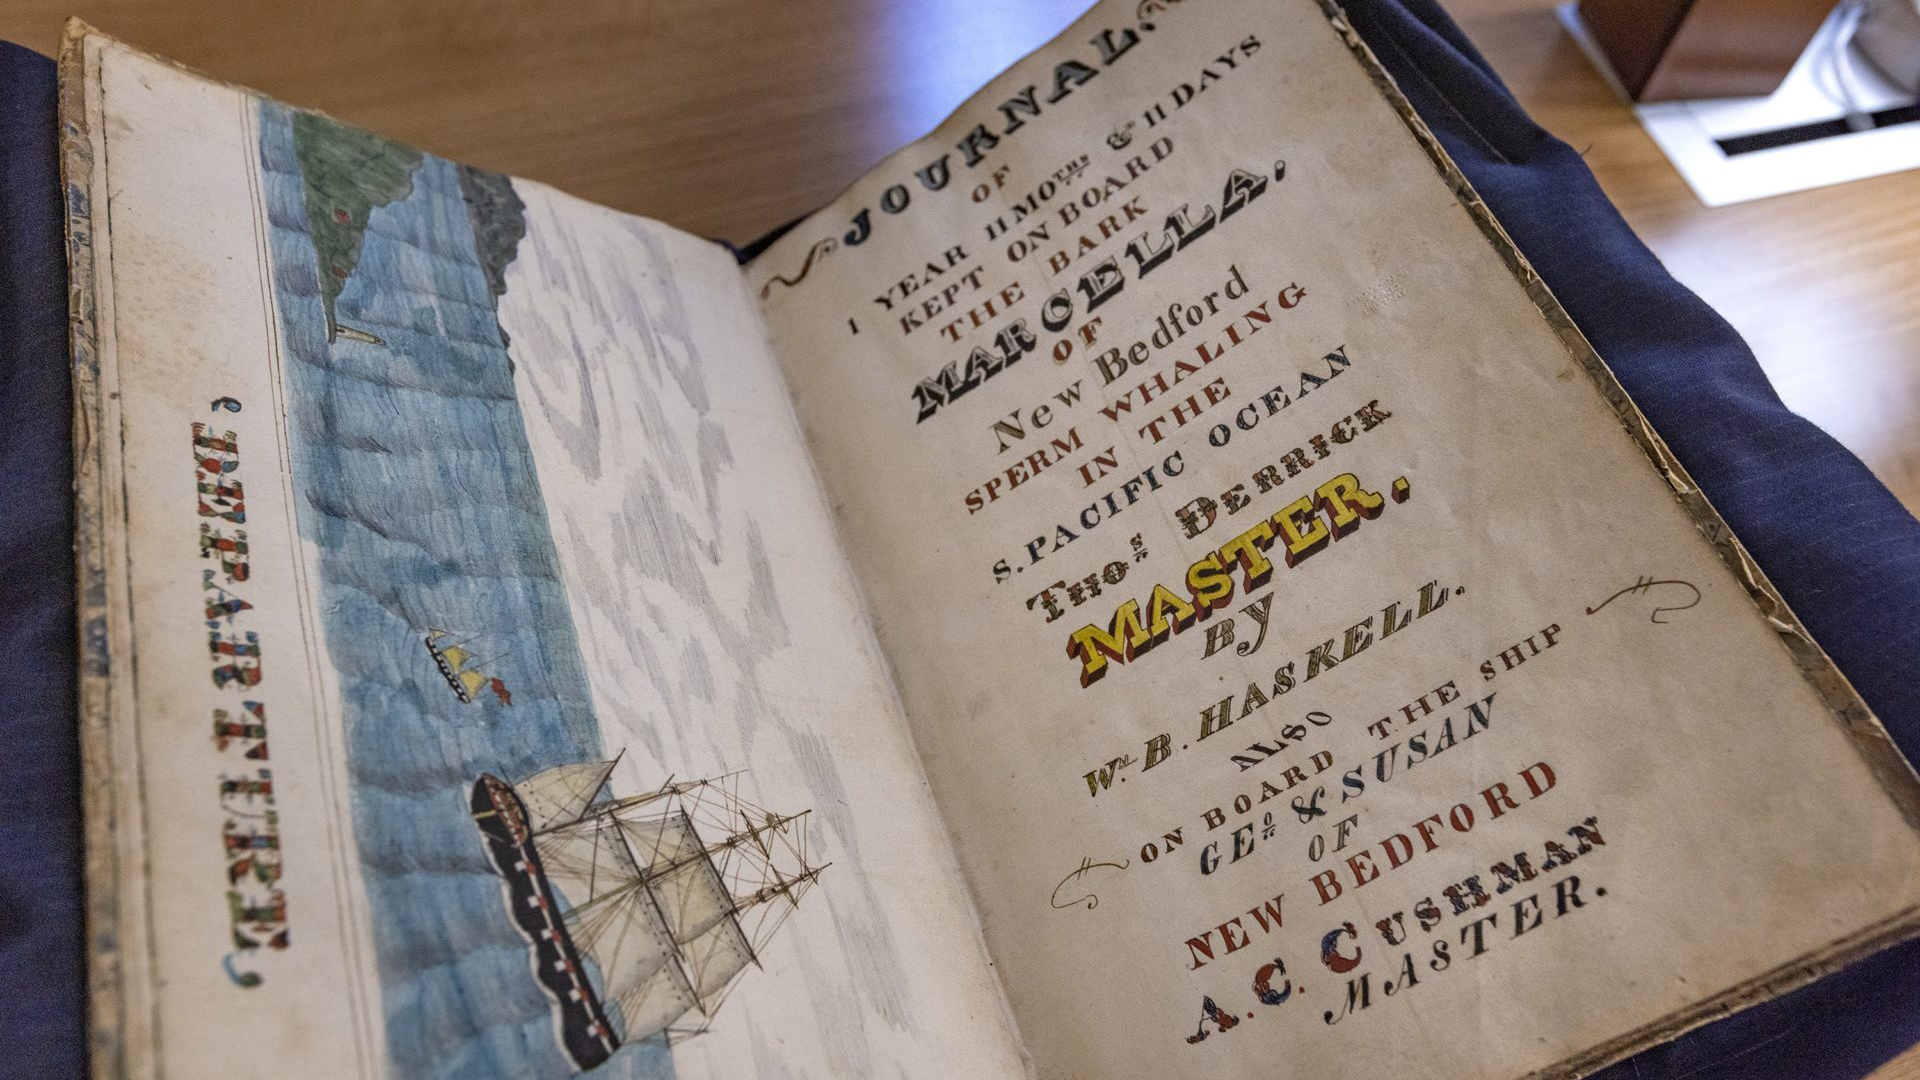 DEPARTURE,
JOURNAL,
OF
1 YEAR 11 MOTHS & 11 DAYS
KEPT ON BOARD
THE BARK
MARCELLA.
OF
New Bedford
SPERM WHALING
IN THE
S. PACIFIC OCEAN
THOS DERRICK
MASTER.
By
WM B. HASKELL.
ALSO
ON BOARD THE SHIP
GEO & SUSAN
OF
NEW BEDFORD
A. C. CUSHMAN
MASTER.